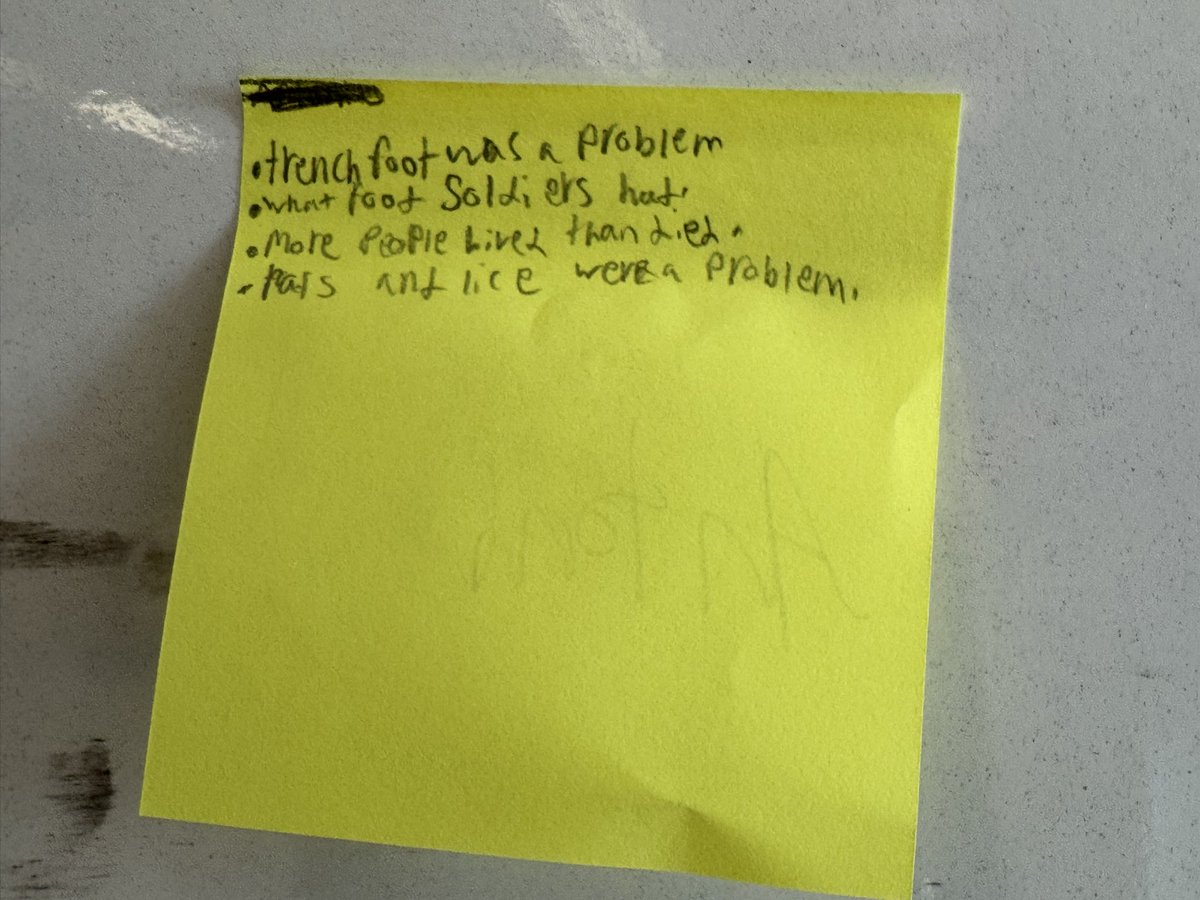 • trench foot was a problem
• what food Soldiers had.
• More People Lived than died.
• Rats and lice were a problem.
Antony